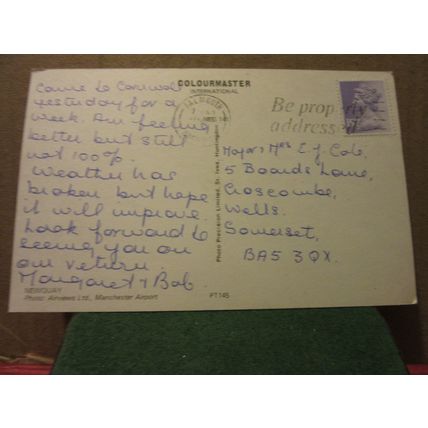 COLOURMASTER
INTERNATIONAL
Came to Cornwall
yesterday for a
week. Am feeling
better but still
not 100%.
Weather has
broken but hope
it will improve.
Look forward to
seeing you on
our return.
Margaret & Bob.
NEWQUAY
Photo: Airviews Ltd., Manchester Airport
PT145
Photo Precision Limited, St. Ives, Huntingdon
FALMOUTH
Be properly
addressed
Major & Mrs E. J. Cole,
5 Boards Lane,
Croscombe,
Wells.
Somerset,
BA5 3QX.